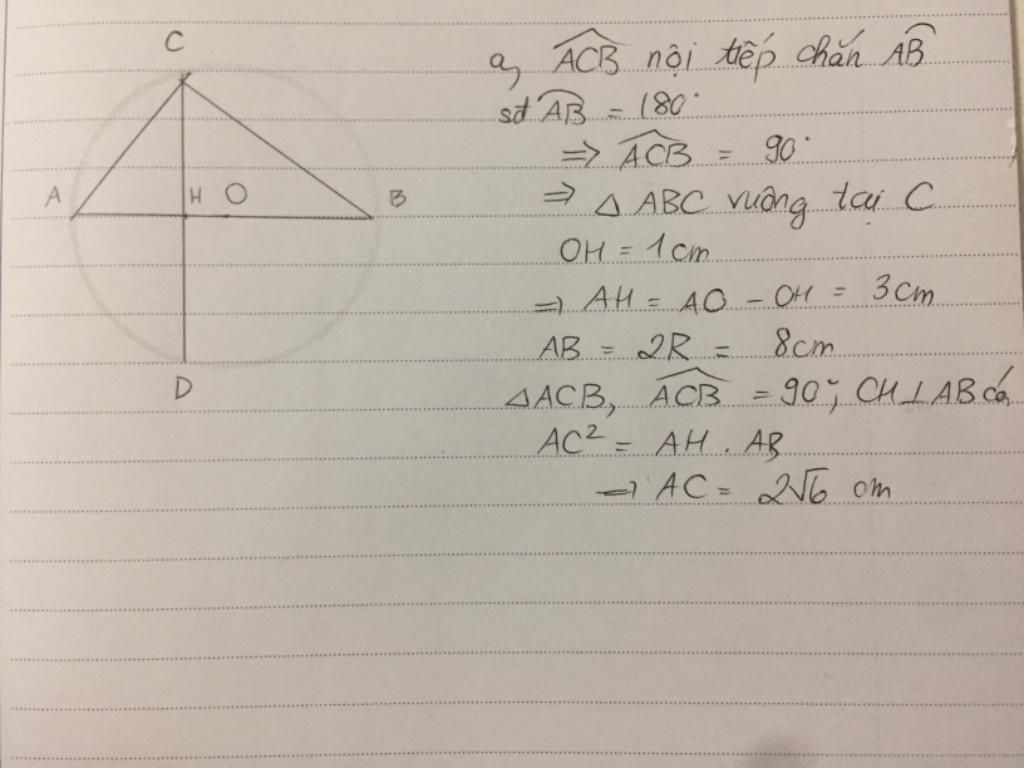 C
A H O B
D
a, ACB nội tiếp chắn AB
sđ AB = 180°
=> ACB = 90°
=> △ ABC vuông tại C
OH = 1cm
=> AH = AO - OH = 3cm
AB = 2R = 8cm
△ACB, ACB = 90°; CH⊥AB có,
AC² = AH . AB
=> AC = 2√6 cm